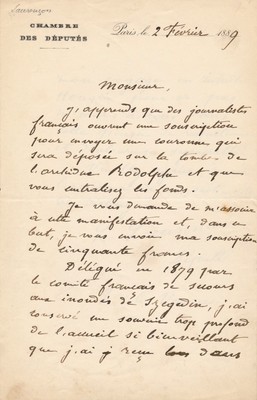 CHAMBRE
DES DÉPUTÉS
Paris, le 2 Février 1889
Monsieur,
J'apprends que des journalistes
français ouvrent une souscription
pour envoyer une couronne qui
sera déposée sur la tombe de
l'archiduc Rodolphe et que
vous centralisez les fonds.
Je vous demande de m'associer
à cette manifestation et, dans ce
but, je vous envoie ma souscription
de cinquante francs.
Délégué en 1879 par
le comité français de secours
aux inondés de Szegedin, j'ai
conservé un souvenir trop profond
de l'accueil si bienveillant
que j'ai reçu dans